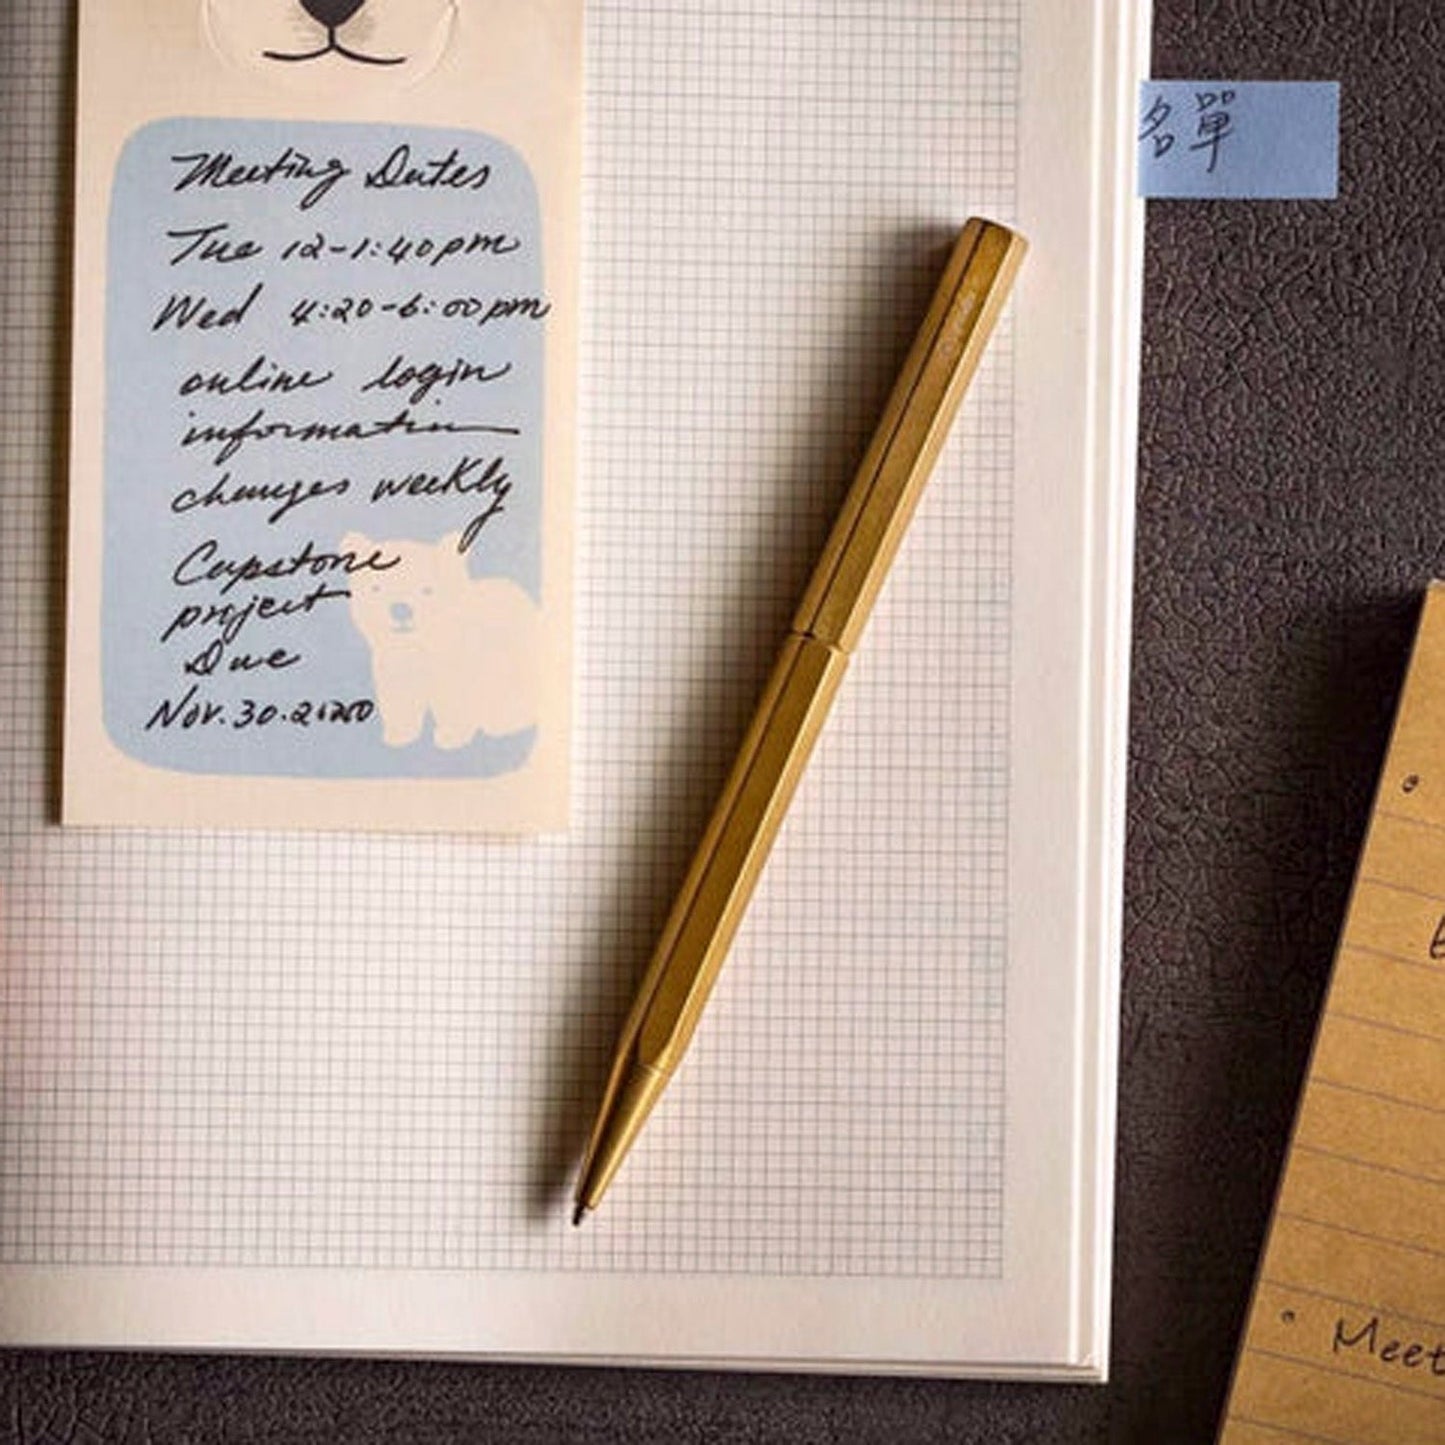 Meeting Dates
Tue 12-1:40pm
Wed 4:20-6:00pm
online login
information
changes weekly
Capstone
project
Due
Nov.30.2020
名單
Meet